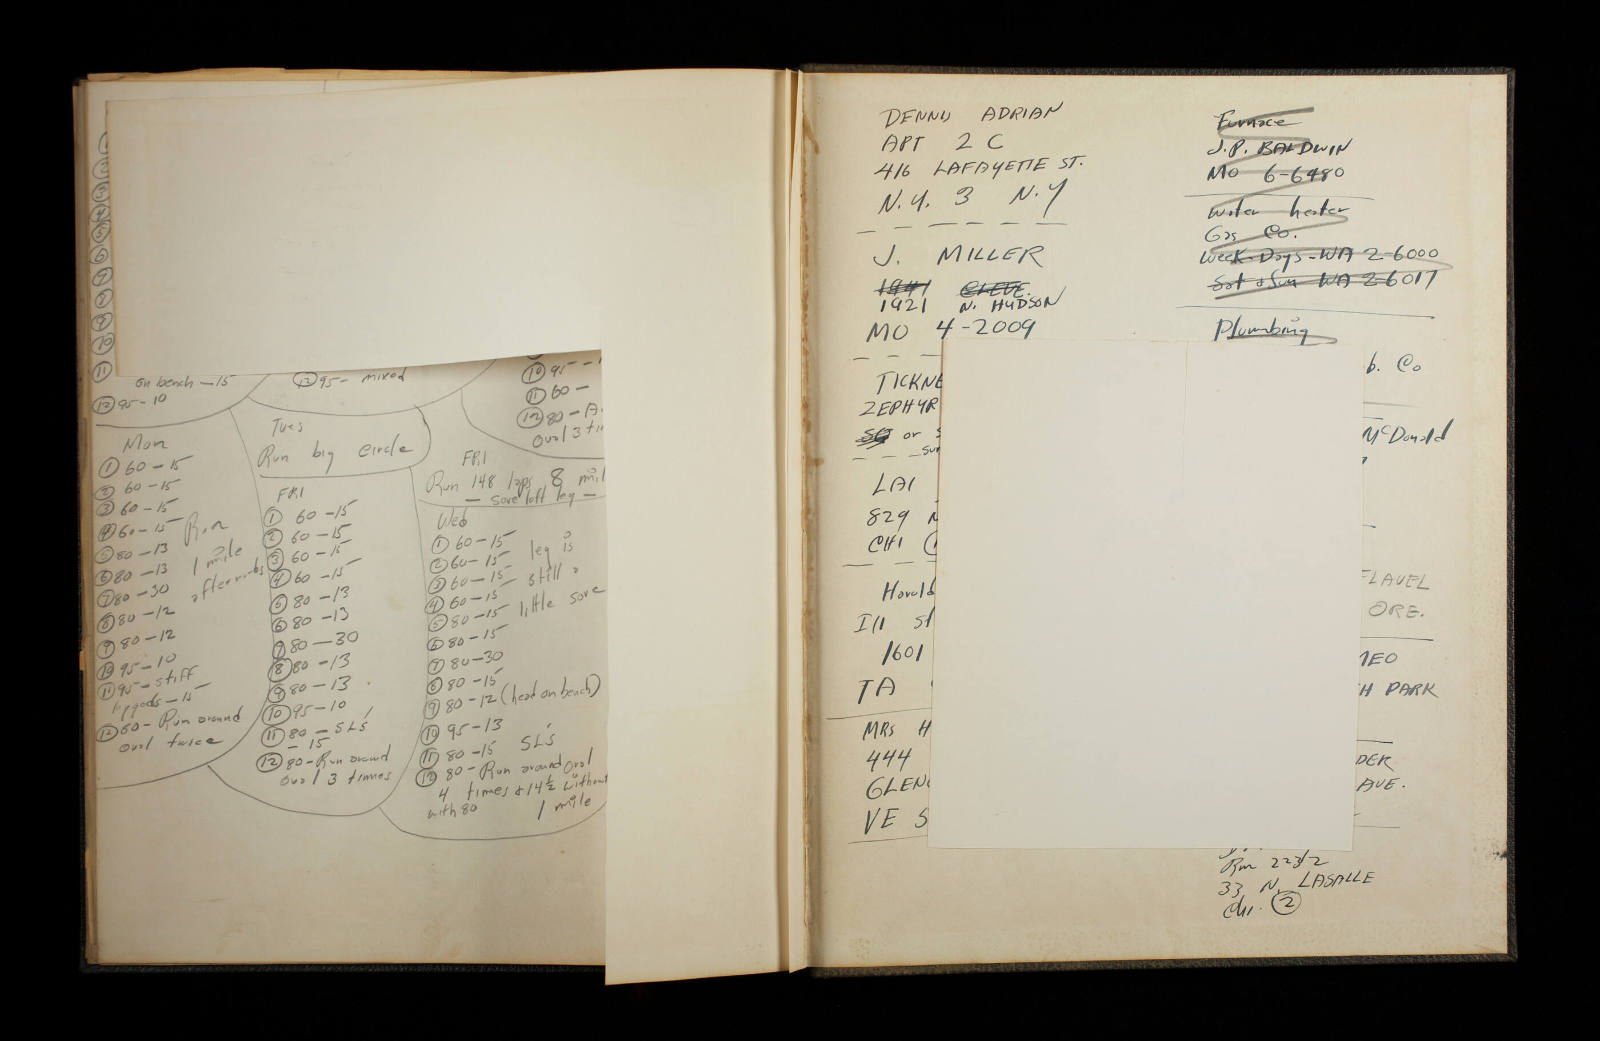 on bench - 15
⑫ 95 - 10
⑬ 95 - mixed
⑩ 95 -
⑪ 60 -
⑫ 80 - A
oval 3 ti
Mon
① 60 - 15
② 60 - 15
③ 60 - 15
④ 60 - 15
⑤ 80 - 13
⑥ 80 - 13
⑦ 80 - 30
⑧ 80 - 12
⑨ 80 - 12
⑩ 95 - 10
⑪ 95 - stiff
- 15
⑫ 60 - Run around
oval twice
Run
1 mile
afterwards
Tues
Run big circle
FRI
① 60 - 15
② 60 - 15
③ 60 - 15
④ 60 - 15
⑤ 80 - 13
⑥ 80 - 13
⑦ 80 - 30
⑧ 80 - 13
⑨ 80 - 13
⑩ 95 - 10
⑪ 80 - SL's
- 15
⑫ 80 - Run around
oval 3 times
FRI
Run 148 laps 8 mil
- sore left leg -
Wed
① 60 - 15
② 60 - 15
③ 60 - 15
④ 60 - 15
⑤ 80 - 15
⑥ 80 - 15
⑦ 80 - 30
⑧ 80 - 15
⑨ 80 - 12 (head on bench)
⑩ 95 - 13
⑪ 80 - 15 SL's
⑫ 80 - Run around oval
4 times & 14½ without
with 80 1 mile
leg is
still a
little sore
DENNIS ADRIAN
APT 2 C
416 LAFAYETTE ST.
N.Y. 3 N.Y
J. MILLER
1941 CLEVE.
1921 N. HUDSON
MO 4-2009
TICKNE
ZEPHYR
or S
SUN
LAI
829 N
CHI
Harold
Ill St
1601
TA
MRS H
444
GLEN
VE S
Furnace
J.P. BALDWIN
MO 6-6480
Water heater
Gas Co.
Week-Days - WA 2-6000
Sat & Sun WA 2-6017
Plumbing
b. Co
McDonald
FLAVEL
ORE.
MEO
H PARK
DER
AVE.
Rm 2232
33 N. LASALLE
Chi. ②